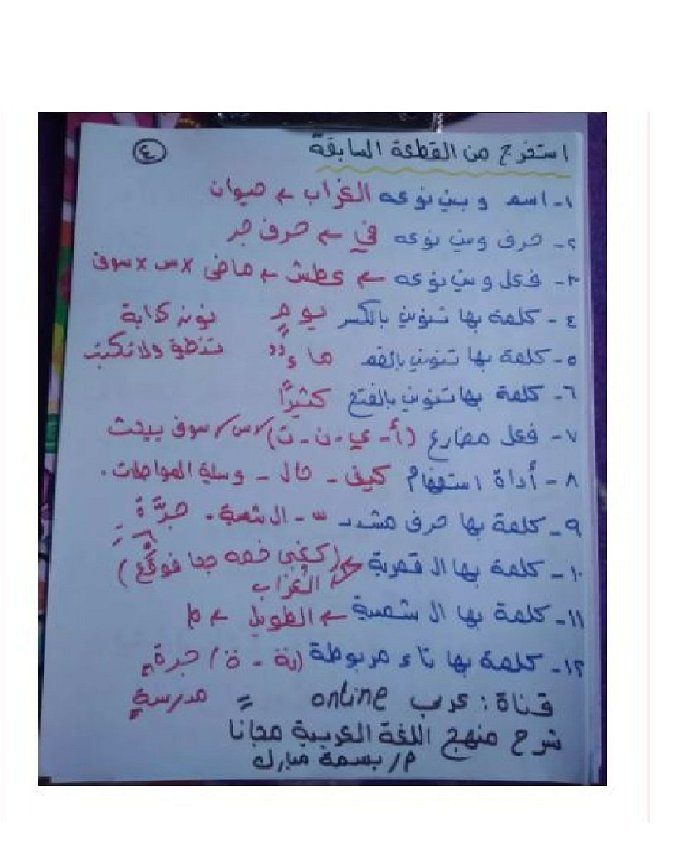 استخرج من القطعة السابقة ٤
١- اسم وبين نوعه الغراب ← حيوان
٢- حرف وبين نوعه في ← حرف جر
٣- فعل وبين نوعه ← عطش ← ماضى x س x سوف
٤- كلمة بها تنوين بالكسر يومٍ نون كدابة
٥- كلمة بها تنوين بالضم ماءٌ تنطق ولا تكتب
٦- كلمة بها تنوين بالفتح كثيرًا
٧- فعل مضارع (أ - ي - ن - ت) / س / سوف يبحث
٨- أداة استفهام كيف - حال - وسيلة المواصلات.
٩- كلمة بها حرف مشدد - ال شمسية. جرَّة
١٠- كلمة بها ال قمرية
الغراب
١١- كلمة بها ال شمسية ← الطويل ← ط
١٢- كلمة بها تاء مربوطة (ـة - ة) / جرة
قناة: عرب online = مدرسة
شرح منهج اللغة العربية مجانا
م/ بسمة مبارك